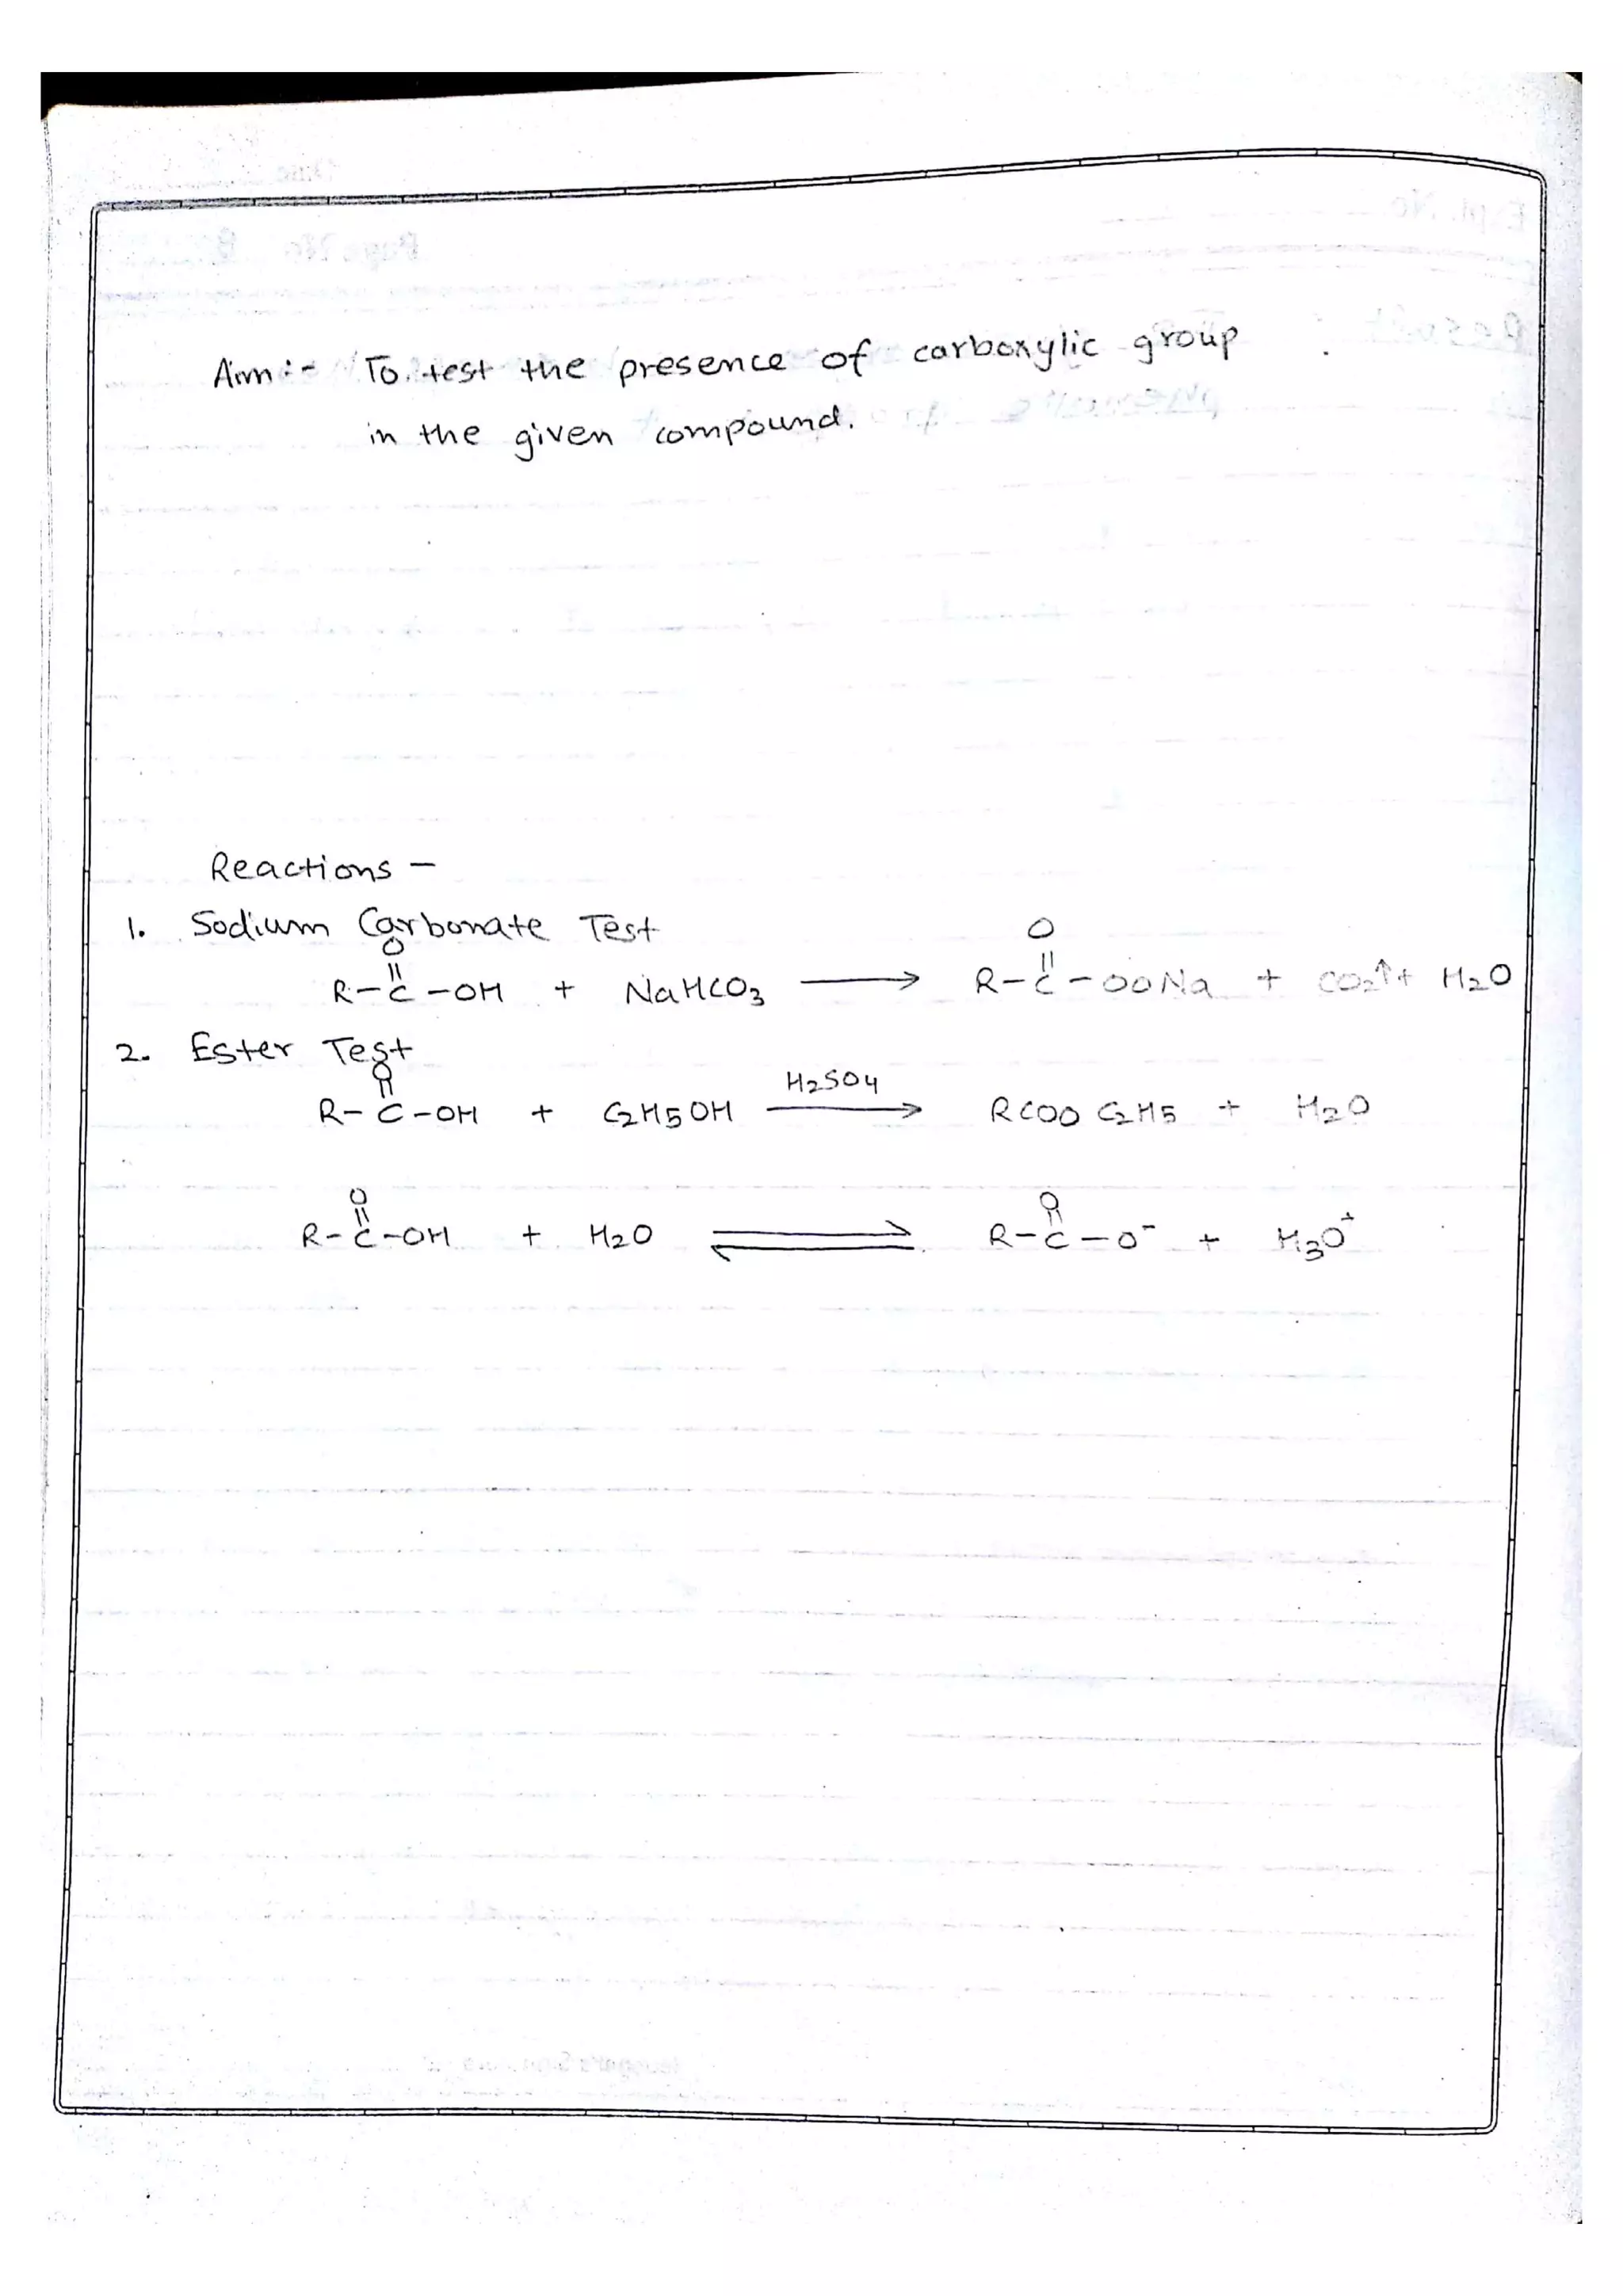 Aim :- To test the presence of carboxylic group
in the given compound.
Reactions -
1. Sodium Carbonate Test
O
R-C-OH + NaHCO3 → R-C-OONa + CO2↑+ H2O
2. Ester Test
R-C-OH + C2H5OH H2SO4 → RCOO C2H5 + H2O
O
R-C-OH + H2O ⇌ R-C-O- + H3O+